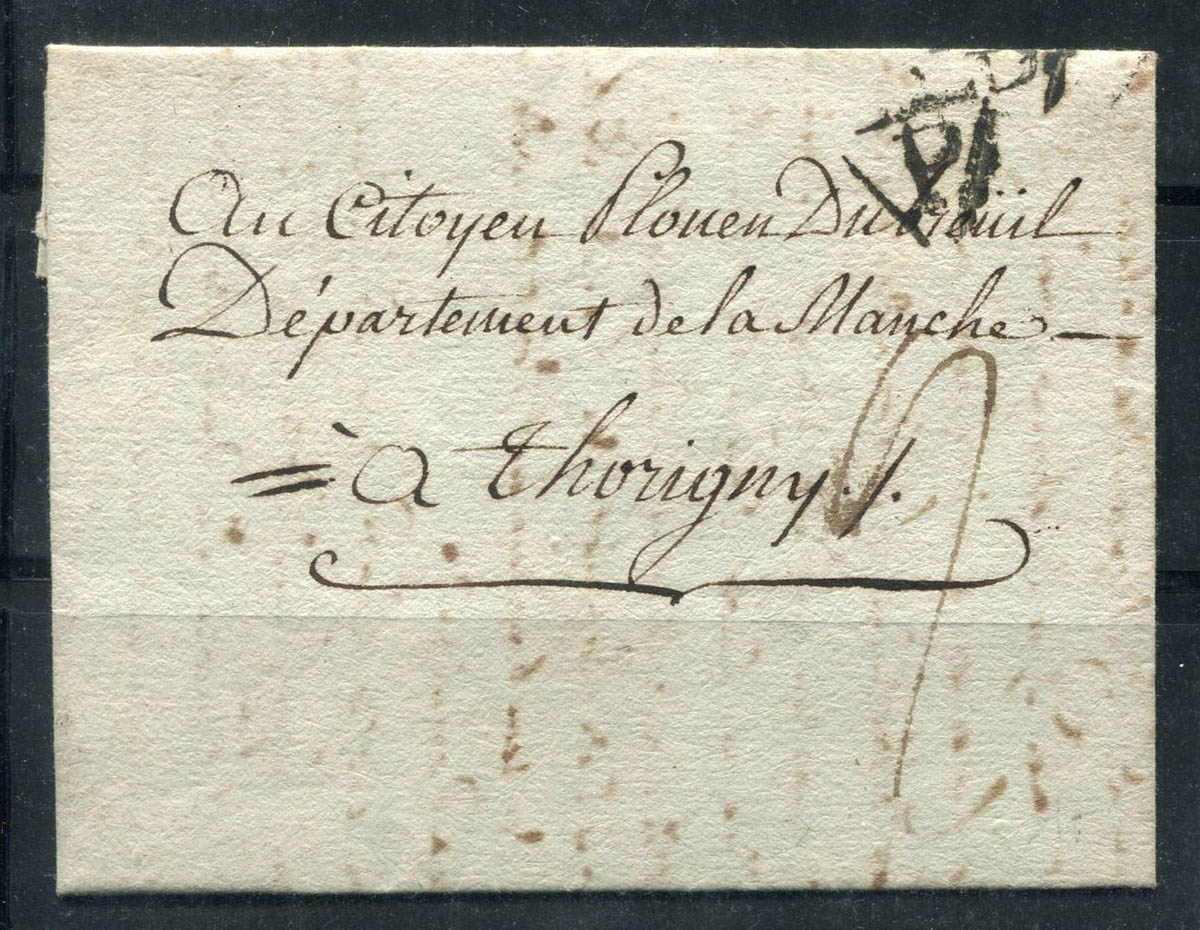 P
Au Citoyen Plouen Dubreüil
Département de la Manche
= à Thorigny./.